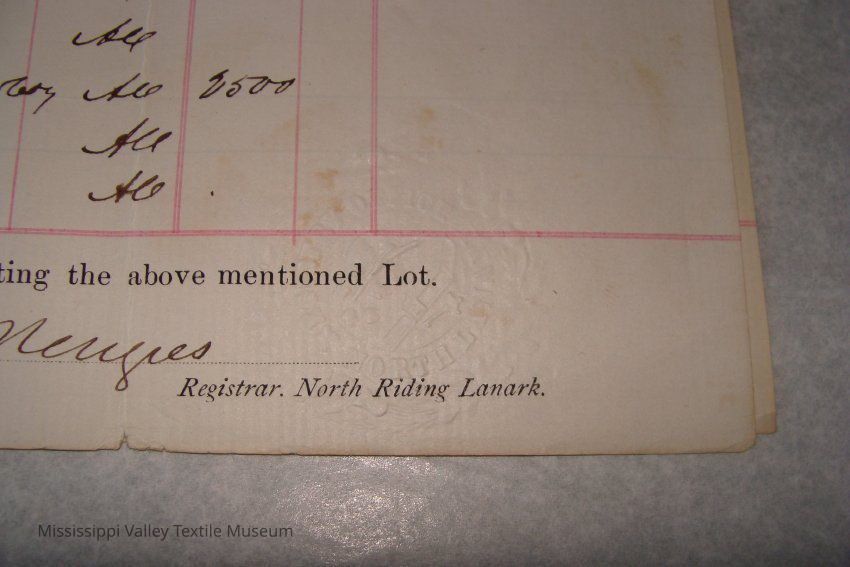 All
All 2500
All
All
ting the above mentioned Lot.
Registrar. North Riding Lanark.
Mississippi Valley Textile Museum